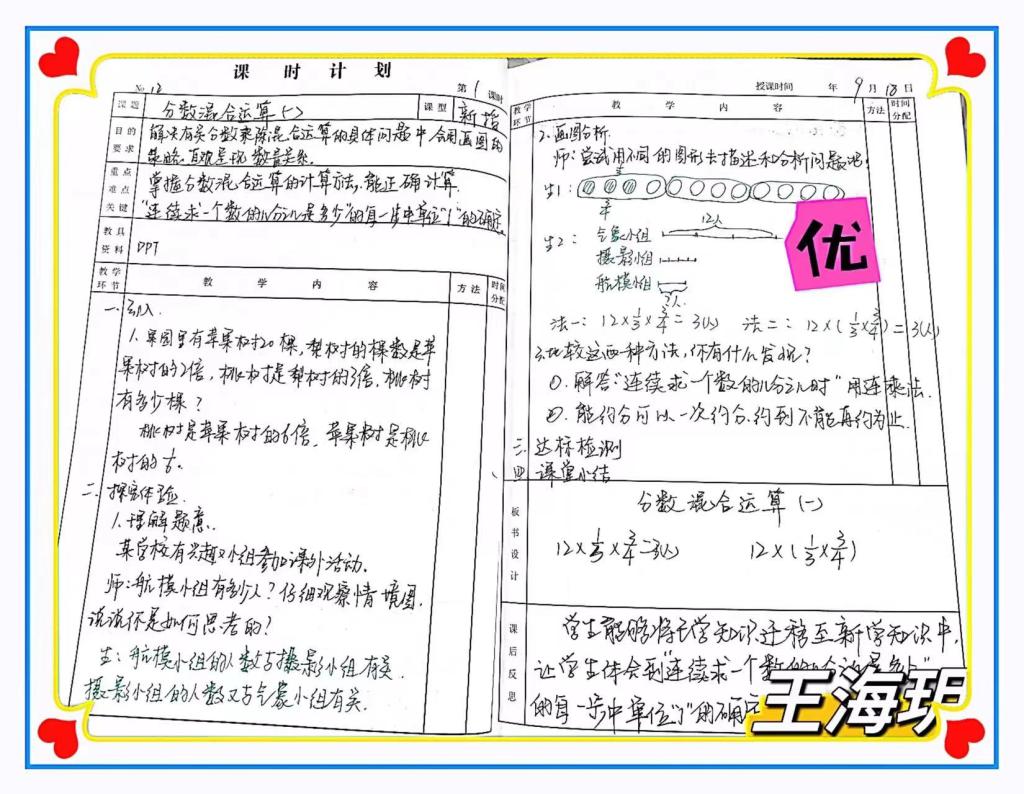 课时计划
No 12 第1课时
课题 分数混合运算(一) 课型 新授
目的要求 解决有关分数乘除混合运算的具体问题中,会用画图的
策略,直观呈现数量关系.
重点 掌握分数混合运算的计算方法,能正确计算.
难点
关键 "连续求一个数的几分之几是多少"的每一步中单位"1"的确定
教具资料 PPT
教学环节 教学内容 方法 时间分配
一.引入
1.果园里有苹果树20棵,梨树的棵数是苹
果树的2倍,桃树是梨树的3倍,桃树
有多少棵?
桃树是苹果树的6倍,苹果树是桃
树的1/6.
二.探究体验
1.理解题意.
某学校有兴趣小组参加课外活动.
师:航模小组有多少人?仔细观察情境图,
说说你是如何思考的?
生:航模小组的人数与摄影小组有关.
摄影小组的人数又与气象小组有关.
授课时间 年 9月18日
教学环节 教学内容 方法 时间分配
2.画图分析.
师:尝试用不同的图形去描述和分析问题吧!
生1:
3/4
12人
生2: 气象小组
摄影小组
航模小组
?人
法一:12×1/3×3/4=3(人) 法二:12×(1/3×3/4)=3(人)
3.比较这两种方法,你有什么发现?
①.解答"连续求一个数的几分之几时"用连乘法.
②.能约分可以一次约分,约到不能再约为止.
三 达标检测
四 课堂小结
板书设计
分数混合运算(一)
12×1/3×3/4=3(人) 12×(1/3×3/4)
课后反思
学生能够将已学知识迁移至新学知识中,
让学生体会到"连续求一个数的几分之几是多少"
的每一步中单位"1"的确定
优
王海玥